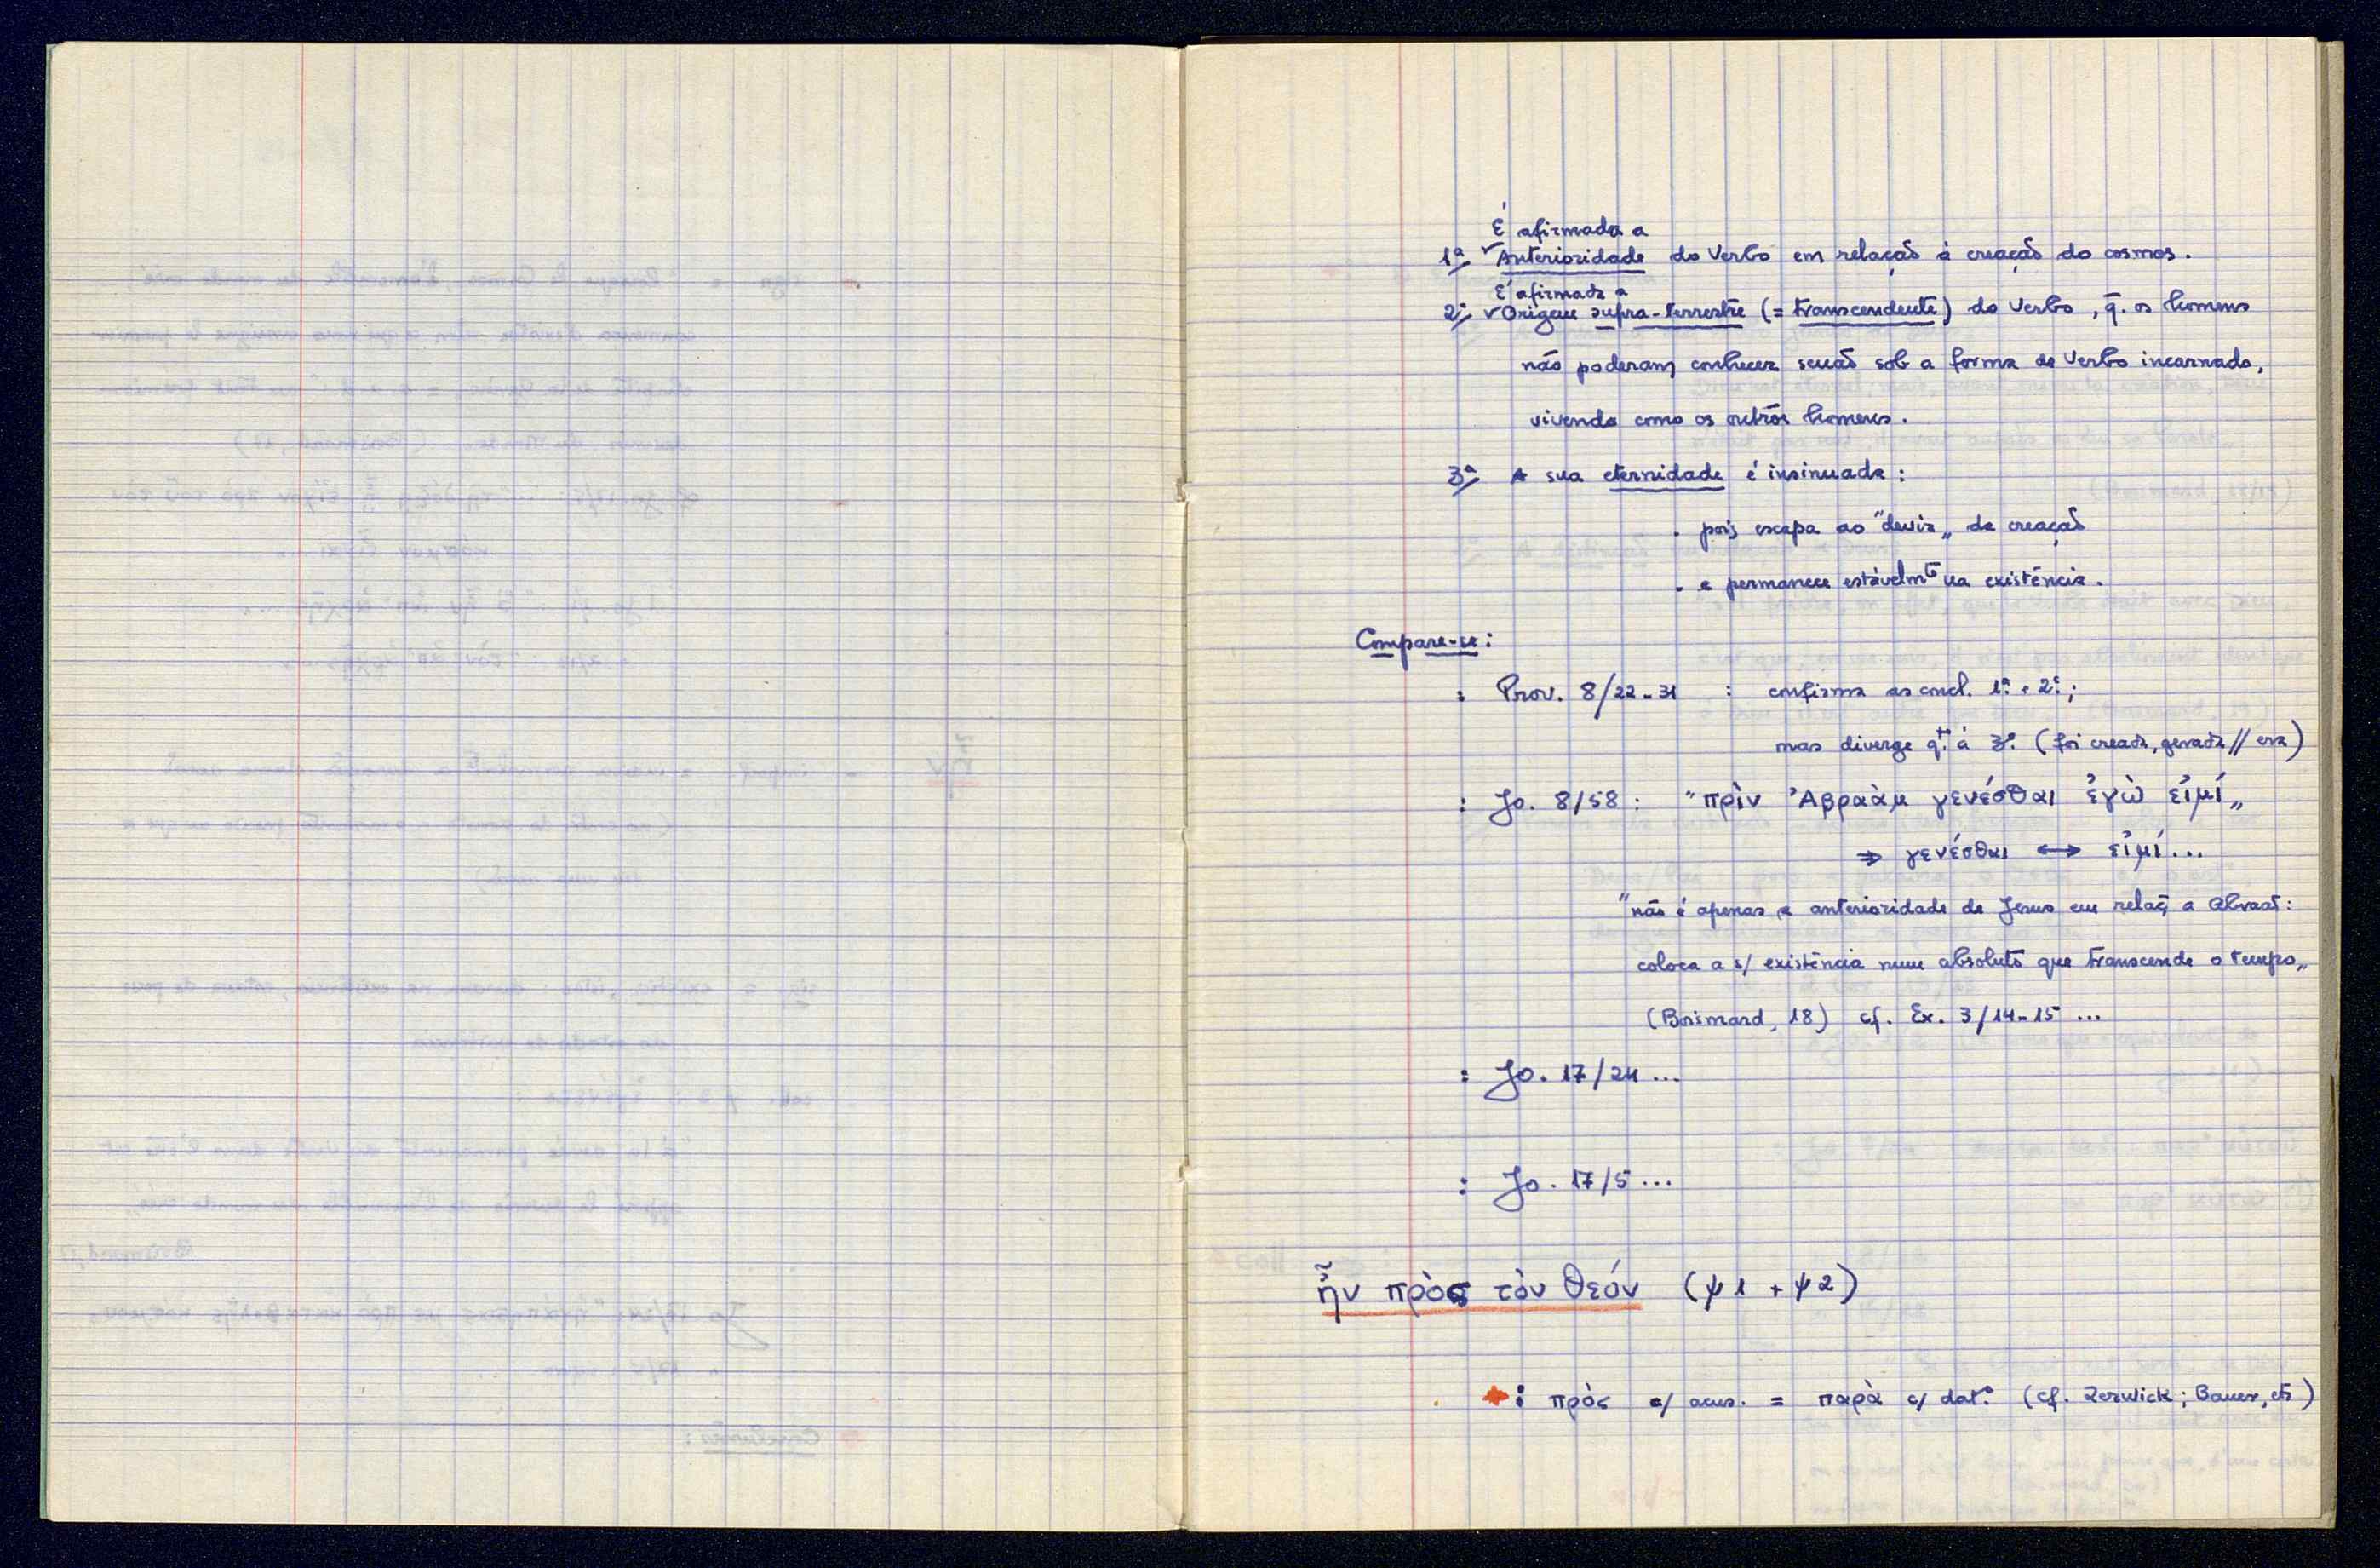 É afirmada a
1ª/ Anterioridade do Verbo em relação à creação do cosmos.
É afirmada a
2ª/ Origem supra-terrestre (= transcendente) do Verbo, q̄. os homens
não poderam conhecer senão sob a forma de Verbo incarnado,
vivendo como os outros homens.
3ª/ A sua eternidade é insinuada:
. pois escapa ao "devir„ da creação
. e permanece estávelmte na existência.
Compare-se:
: Prov. 8/22-31 : confirma as concl. 1ª. + 2ª.;
mas diverge qto. à 3ª. (foi creada, gerada // era)
: Jo. 8/58: "πρὶν Ἀβραὰμ γενέσθαι ἐγὼ εἰμί„
⇒ γενέσθαι ↔ εἰμί...
"não é apenas a anterioridade de Jesus em relaç̄ a Abraão:
coloca a s/ existência num absoluto que transcende o tempo„
(Boismard, 18) cf. Ex. 3/14-15 ...
: Jo. 17/24 ...
: Jo. 17/5 ...
ἦν πρὸς τὸν θεόν (ψ 1 + ψ 2)
: πρὸς c/ acus. = παρὰ c/ dat.º (cf. Zerwick; Bauer, etc)